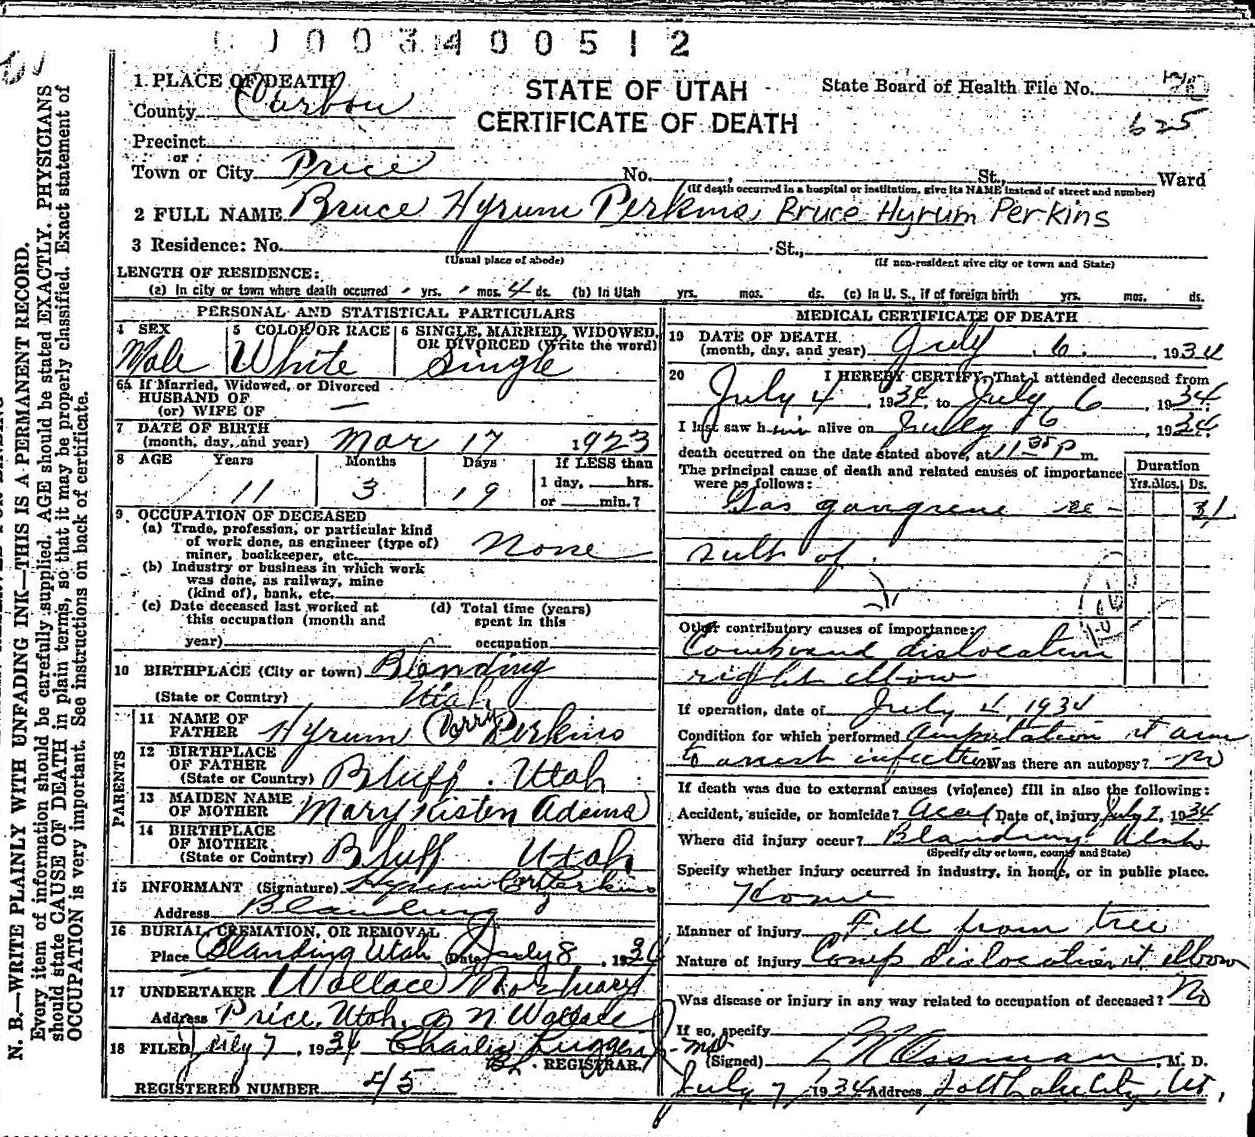 0 0 0 3 4 0 0 5 1 2
1 PLACE OF DEATH
County Carbon
STATE OF UTAH
CERTIFICATE OF DEATH
State Board of Health File No.
625
Precinct
or
Town or City Price No. , St., Ward
(If death occurred in a hospital or institution, give its NAME instead of street and number)
2 FULL NAME Bruce Hyrum Perkins Bruce Hyrum Perkins
3 Residence: No. St.,
(Usual place of abode) (If non-resident give city or town and State)
LENGTH OF RESIDENCE:
(a) In city or town where death occurred yrs. mos. 4 ds. (b) In Utah yrs. mos. ds. (c) In U. S., if of foreign birth yrs. mos. ds.
PERSONAL AND STATISTICAL PARTICULARS
4 SEX
Male
5 COLOR OR RACE
White
6 SINGLE, MARRIED, WIDOWED, OR DIVORCED (Write the word)
Single
6a If Married, Widowed, or Divorced
HUSBAND OF
(or) WIFE OF —
7 DATE OF BIRTH
(month, day, and year) Mar 17 1923
8 AGE Years Months Days If LESS than
11 3 19 1 day, hrs.
or min.?
9 OCCUPATION OF DECEASED
(a) Trade, profession, or particular kind
of work done, as engineer (type of)
miner, bookkeeper, etc. None
(b) Industry or business in which work
was done, as railway, mine
(kind of), bank, etc.
(c) Date deceased last worked at
this occupation (month and
year)
(d) Total time (years)
spent in this
occupation
10 BIRTHPLACE (City or town) Blanding
(State or Country) Utah
PARENTS
11 NAME OF
FATHER Hyrum Perkins
12 BIRTHPLACE
OF FATHER
(State or Country) Bluff Utah
13 MAIDEN NAME
OF MOTHER Mary Adams
14 BIRTHPLACE
OF MOTHER
(State or Country) Bluff Utah
15 INFORMANT (Signature) Hyrum Perkins
Address Blanding
16 BURIAL, CREMATION, OR REMOVAL
Place Blanding Utah Date July 8, 1934
17 UNDERTAKER Wallace Mortuary
Address Price, Utah. Wallace
18 FILED July 7, 1934 REGISTRAR.
REGISTERED NUMBER 45
MEDICAL CERTIFICATE OF DEATH
19 DATE OF DEATH
(month, day, and year) July 6. , 1934
20 I HEREBY CERTIFY, That I attended deceased from
July 4, 1934, to July 6, 1934.
I last saw him alive on July 6, 1934.
death occurred on the date stated above, at 11 35 P m.
The principal cause of death and related causes of importance
were as follows:
Duration
Yrs. Mos. Ds.
Gas gangrene re-
sult of
Other contributory causes of importance:
Compound dislocation
right elbow
If operation, date of July 4, 1934
Condition for which performed Amputation rt arm
to arrest infection Was there an autopsy? No
If death was due to external causes (violence) fill in also the following:
Accident, suicide, or homicide? Acc Date of injury July 2, 1934
Where did injury occur? Blanding Utah
(Specify city or town, county and State)
Specify whether injury occurred in industry, in home, or in public place.
Home
Manner of injury Fell from tree
Nature of injury Comp dislocation rt elbow
Was disease or injury in any way related to occupation of deceased? No
If so, specify
(Signed) , M. D.
July 7, 1934 Address Salt Lake City, Ut.
N. B.—WRITE PLAINLY WITH UNFADING INK—THIS IS A PERMANENT RECORD.
Every item of information should be carefully supplied. AGE should be stated EXACTLY. PHYSICIANS
should state CAUSE OF DEATH in plain terms, so that it may be properly classified. Exact statement of
OCCUPATION is very important. See instructions on back of certificate.